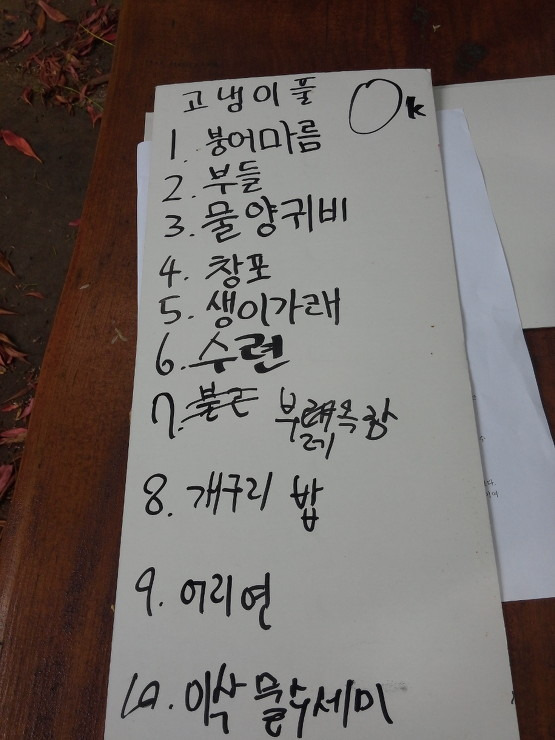 고냉이풀 Ok
1. 붕어마름
2. 부들
3. 물양귀비
4. 창포
5. 생이가래
6. 수련
7. 부레옥잠
8. 개구리 밥
9. 어리연
10. 이삭 물수세미